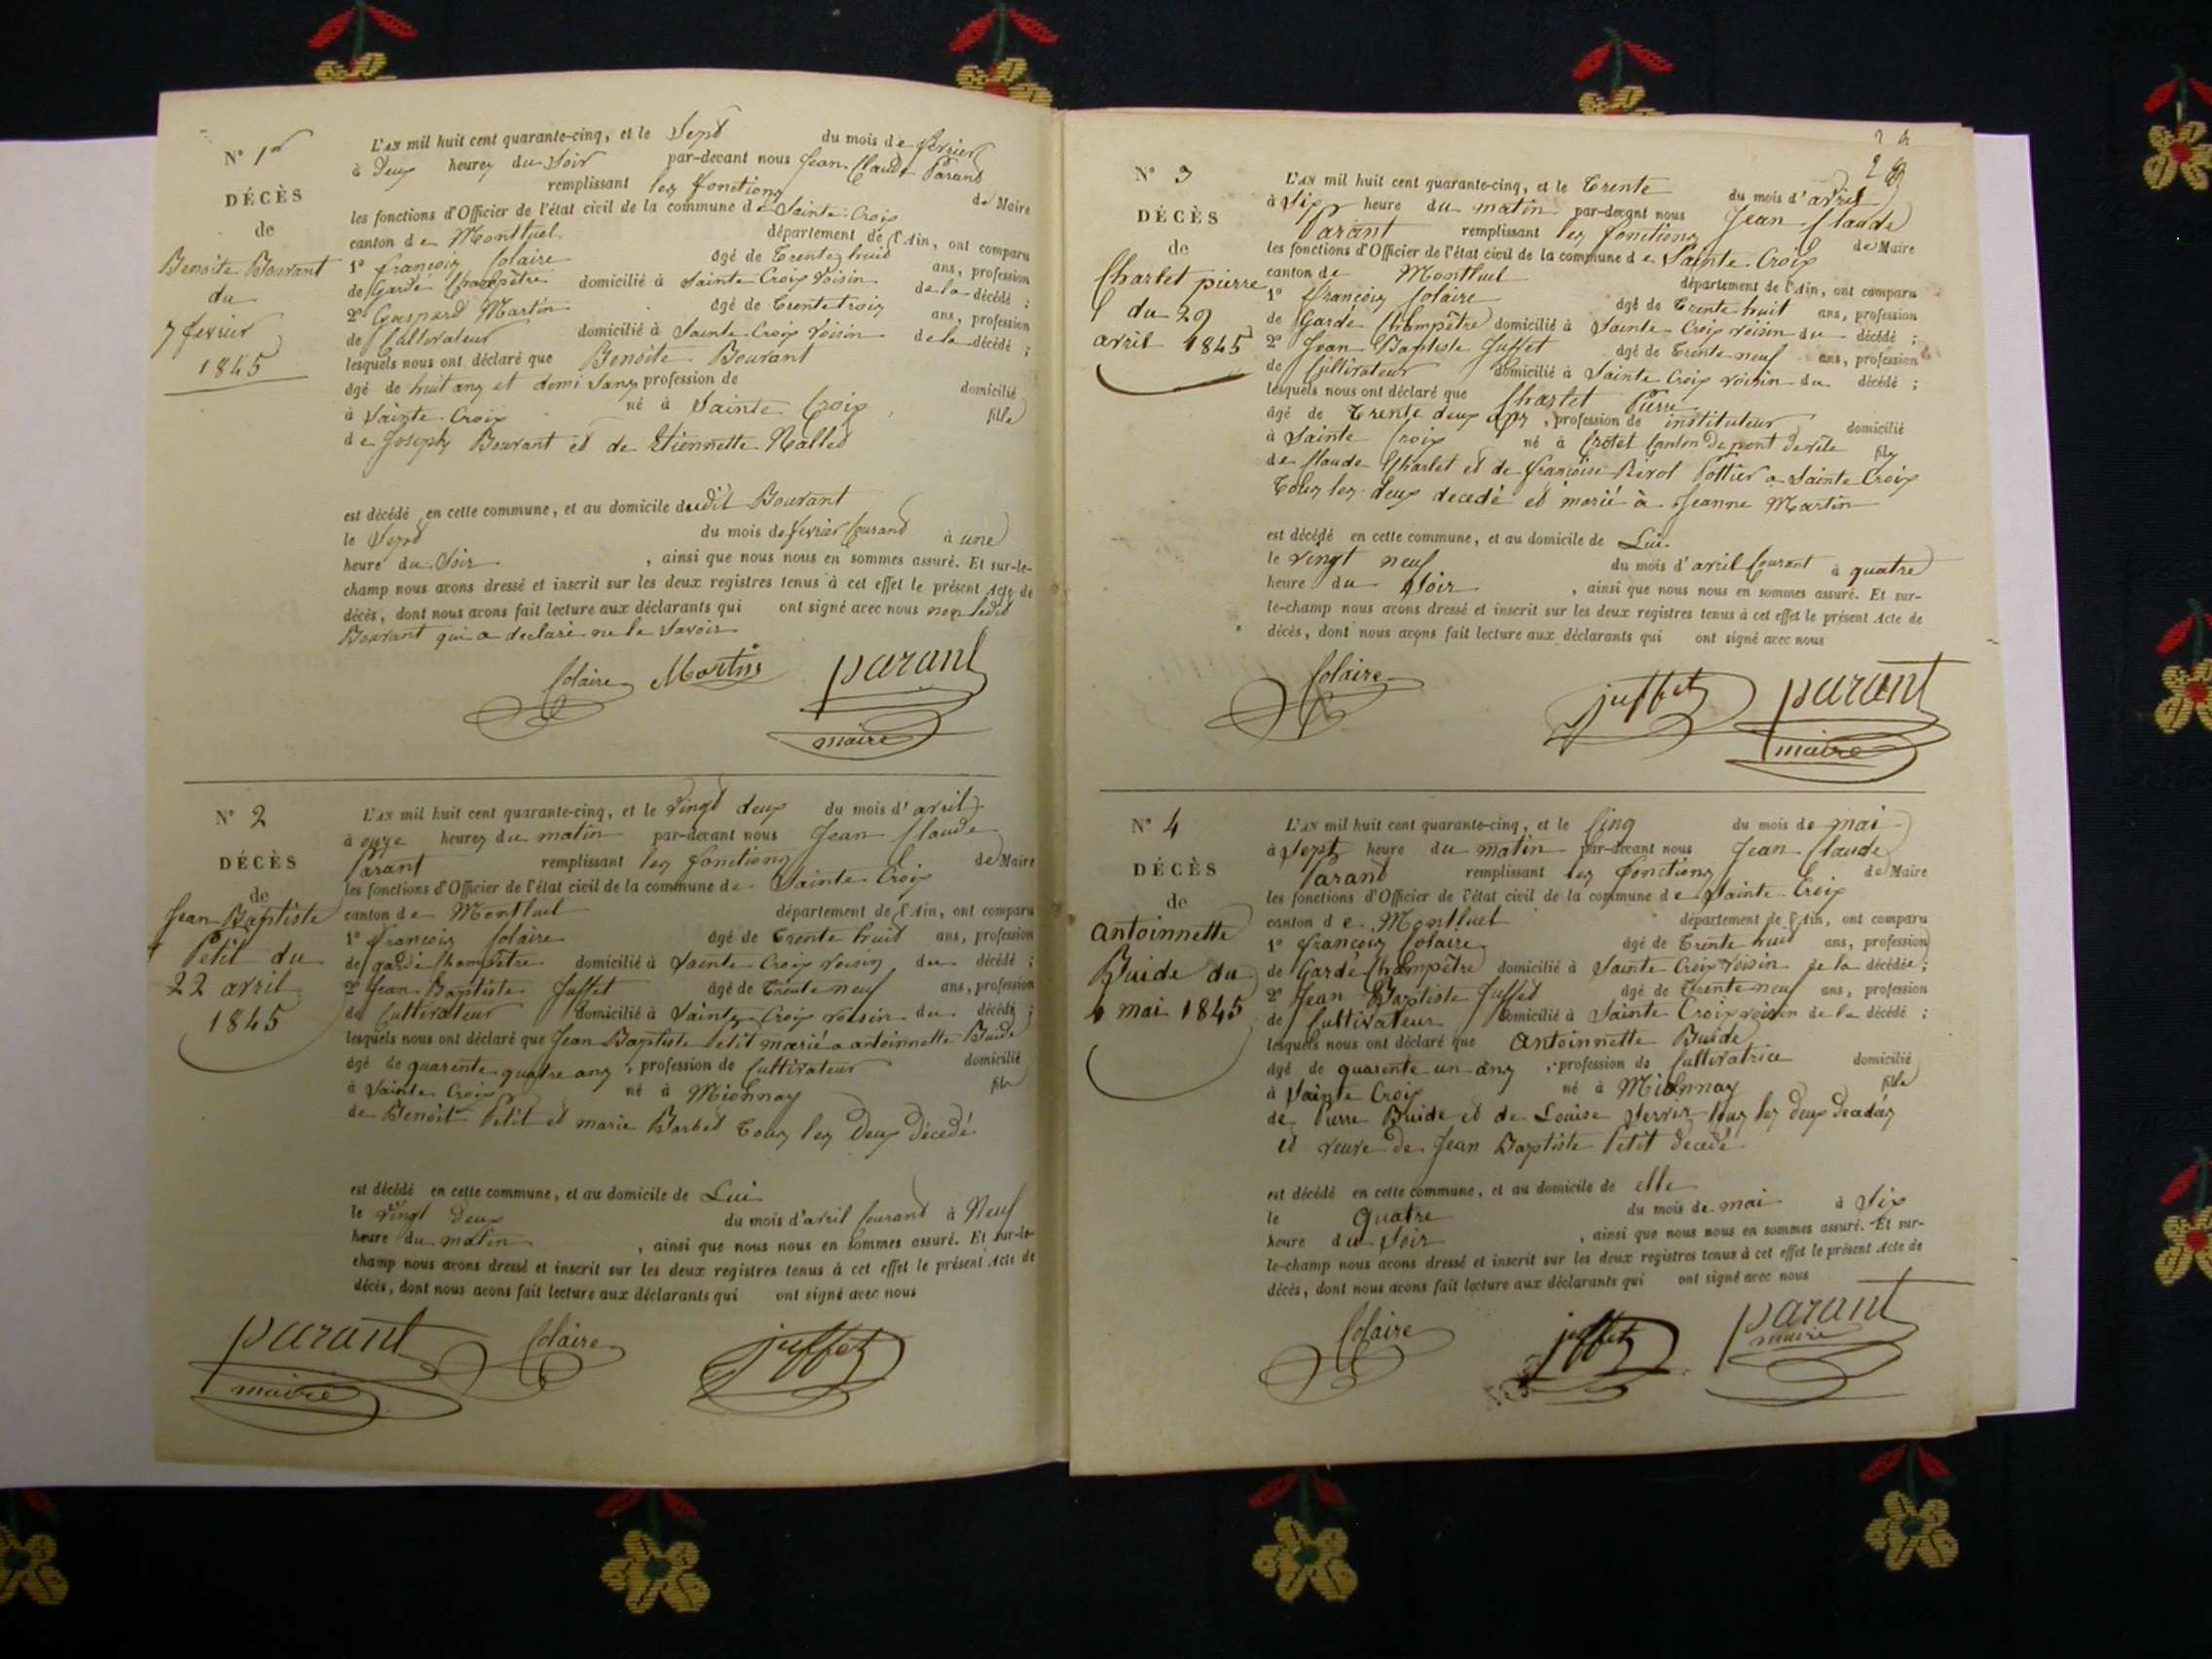 N° 1er
DÉCÈS
de
Benoite Bouvant
du
7 fevrier
1845
L'AN mil huit cent quarante-cinq, et le Sept du mois de fevrier
à deux heures du Soir par-devant nous Jean Claude Parant
remplissant les fonctions de Maire
les fonctions d'Officier de l'état civil de la commune de Sainte Croix
canton de Montluel département de l'Ain, ont comparu
1° François Colaire âgé de Trente huit ans, profession
de Garde Champêtre domicilié à Sainte Croix voisin de la décédé ;
2° Gaspard Martin âgé de Trente trois ans, profession
de Cultivateur domicilié à Sainte Croix voisin de la décédé ;
lesquels nous ont déclaré que Benoite Bouvant
âgé de huit ans et demi Sans profession de domicilié
à Sainte Croix né à Sainte Croix fille
de Joseph Bouvant et de Etiennette Nallet
est décédé en cette commune, et au domicile dudit Bouvant
le Sept du mois de fevrier Courant à une
heure du Soir , ainsi que nous nous en sommes assuré. Et sur-le-
champ nous avons dressé et inscrit sur les deux registres tenus à cet effet le présent Acte de
décès, dont nous avons fait lecture aux déclarants qui ont signé avec nous non ledit
Bouvant qui a declaré ne le Savoir
Colaire Martin parant
maire
N° 2
DÉCÈS
de
Jean Baptiste
Petit du
22 avril
1845
L'AN mil huit cent quarante-cinq, et le vingt deux du mois d'avril
à onze heures du matin par-devant nous Jean Claude
Parant remplissant les fonctions de Maire
les fonctions d'Officier de l'état civil de la commune de Sainte Croix
canton de Montluel département de l'Ain, ont comparu
1° François Colaire âgé de Trente huit ans, profession
de garde Champêtre domicilié à Sainte Croix voisin du décédé ;
2° Jean Baptiste Juffet âgé de Trente neuf ans, profession
de Cultivateur domicilié à Sainte Croix voisin du décédé ;
lesquels nous ont déclaré que Jean Baptiste Petit marié a antoinnette Buide
âgé de quarente quatre ans , profession de Cultivateur domicilié
à Sainte Croix né à Mionnay fils
de Benoit Petit et marie Barbet Tous les Deux décedé
est décédé en cette commune, et au domicile de Lui
le vingt deux du mois d'avril Courant à Neuf
heure du matin , ainsi que nous nous en sommes assuré. Et sur-le-
champ nous avons dressé et inscrit sur les deux registres tenus à cet effet le présent Acte de
décès, dont nous avons fait lecture aux déclarants qui ont signé avec nous
parant Colaire juffet
maire
N° 3
DÉCÈS
de
Charlet pierre
du 29
avril 1845
L'AN mil huit cent quarante-cinq, et le Trente du mois d'avril
à Six heure du matin par-devant nous Jean Claude
Parant remplissant les fonctions de Maire
les fonctions d'Officier de l'état civil de la commune de Sainte Croix
canton de Montluel département de l'Ain, ont comparu
1° François Colaire âgé de Trente huit ans, profession
de Garde Champêtre domicilié à Sainte Croix voisin du décédé ;
2° Jean Baptiste Juffet âgé de Trente neuf ans, profession
de Cultivateur domicilié à Sainte Croix voisin du décédé ;
lesquels nous ont déclaré que Charlet Pierre
âgé de Trente deux ans , profession de instituteur domicilié
à Sainte Croix né à Crotet Canton de pont de vêle fils
de Claude Charlet et de françoise a Sainte Croix
Tous les deux decedé et marié à Jeanne Martin
est décédé en cette commune, et au domicile de Lui
le vingt neuf du mois d'avril Courant à quatre
heure du Soir , ainsi que nous nous en sommes assuré. Et sur-
le-champ nous avons dressé et inscrit sur les deux registres tenus à cet effet le présent Acte de
décès, dont nous avons fait lecture aux déclarants qui ont signé avec nous
Colaire juffet parant
maire
N° 4
DÉCÈS
de
antoinnette
Buide du
4 mai 1845
L'AN mil huit cent quarante-cinq, et le Cinq du mois de mai
à Sept heure du matin par-devant nous Jean Claude
Parant remplissant les fonctions de Maire
les fonctions d'Officier de l'état civil de la commune de Sainte Croix
canton de Montluel département de l'Ain, ont comparu
1° François Colaire âgé de Trente huit ans, profession
de Garde Champêtre domicilié à Sainte Croix voisin de la décédée ;
2° Jean Baptiste Juffet âgé de Trente neuf ans, profession
de Cultivateur domicilié à Sainte Croix voisin de la décédé ;
lesquels nous ont déclaré que antoinnette Buide
âgé de quarente un ans , profession de Cultivatrice domicilié
à Sainte Croix né à Mionnay fille
de Pierre Buide et de Louise Servier tous les deux decadés
et veuve de Jean Baptiste Petit decedé
est décédé en cette commune, et au domicile de elle
le quatre du mois de mai à Six
heure du Soir , ainsi que nous nous en sommes assuré. Et sur-
le-champ nous avons dressé et inscrit sur les deux registres tenus à cet effet le présent Acte de
décès, dont nous avons fait lecture aux déclarants qui ont signé avec nous
Colaire juffet parant
maire